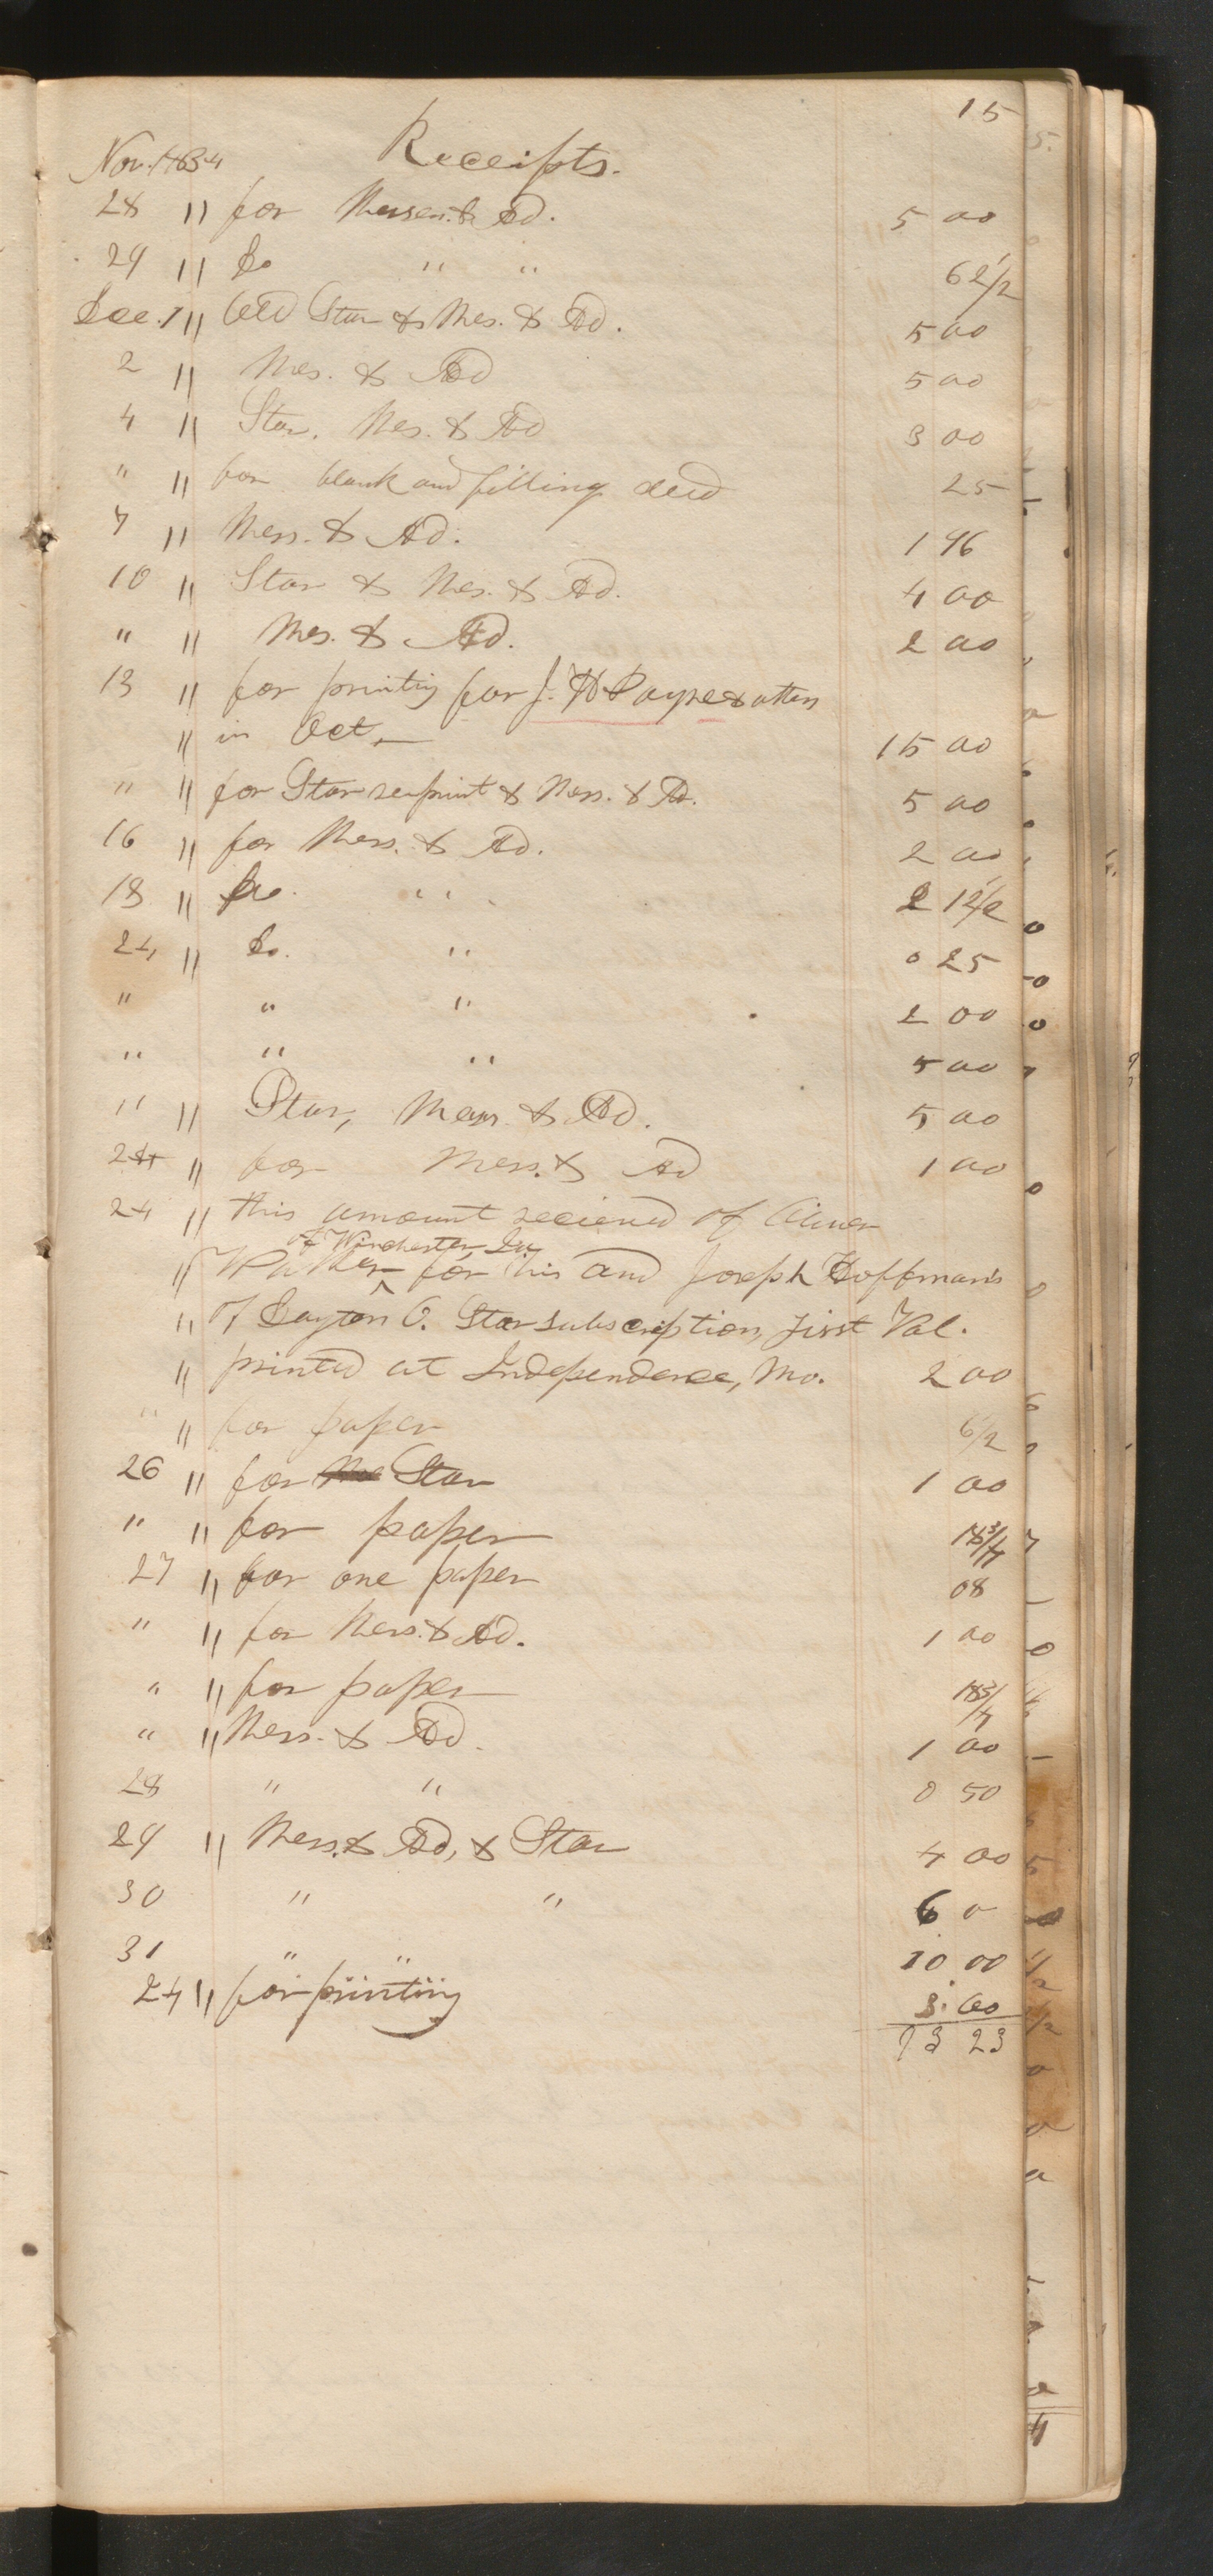 15
Nov. 1834 Receipts.
28 " for Messen. & Ad. 5 00
29 " Do " " 62 1/2
Dec. 1 " Old Star & Mes. & Ad. 5 00
2 " Mes. & Ad 5 00
4 " Star, Mes. & Ad 3 00
" " for blank and filling deed 25
7 " Mess. & Ad. 1 96
10 " Star & Mes. & Ad. 4 00
" " Mes. & Ad. 2 00
13 " for printing for J. H Payne & others
" in Oct, — 15 00
" " for Star reprint & Mess. & Ad. 5 00
16 " for Mess. & Ad. 2 00
18 " Do. " 2 12 1/2
24 " Do. " 0 25
" " " 2 00
" " " 5 00
" " Star, Mess. & Ad. 5 00
24 " for Mess. & Ad 1 00
24 " this amount recieved of
of Winchester Ia
" for his and Joseph Hoffman's
" of Dayton O. Star subscription, first Vol.
" printed at Independence, Mo. 2 00
" " for paper 6 1/2
26 " for Star 1 00
" " for paper 18 3/4
27 " for one paper 08
" " for Mess. & Ad. 1 00
" " for paper 18 3/4
" " Mess. & Ad. 1 00
28 " " 0 50
29 " Mess. & Ad, & Star 4 00
30 " " 6 0
31 " " 10 00
24 " for printing 3. 00
93 23